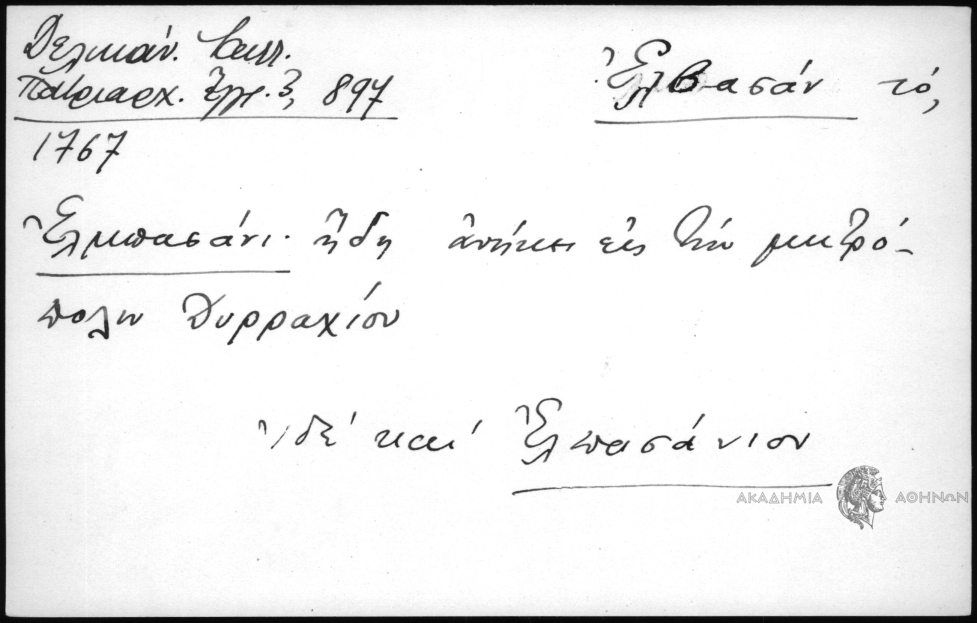 Δελικάν. Καλλ.
Πατριαρχ. Ἔγγρ. 3, 897
Ἐλβασάν τό,
1767
Ἐλμπασάνι. ἤδη ἀνήκει εἰς τήν μητρό-
πολιν Δυρραχίου
ἰδέ καί Ἐλπασάνιον
ΑΚΑΔΗΜΙΑ ΑΘΗΝΩΝ